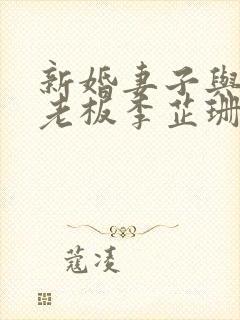 新婚妻子與
老板李芷珊
蔻凌